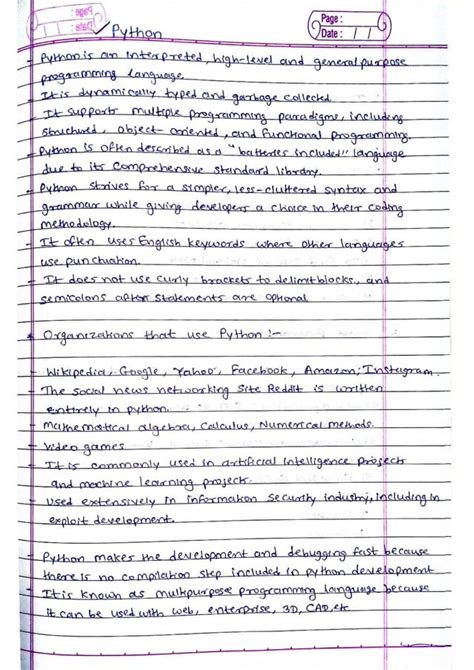 Page :
Date : / /
Python
- Python is an interpreted, high-level and general purpose
programming language.
- It is dynamically typed and garbage collected
- It supports multiple programming paradigms, including
structured, object-oriented, and functional programming.
- Python is often described as a "batteries included" language
due to its comprehensive standard library.
- Python strives for a simpler, less-cluttered syntax and
grammar while giving developers a choice in their coding
methodology.
- It often uses English keywords where other languages
use punctuation.
- It does not use curly brackets to delimit blocks, and
semicolons after statements are optional
* Organizations that use Python :-
- Wikipedia, Google, Yahoo, Facebook, Amazon, Instagram.
- The social news networking site Reddit is written
entirely in python.
- Mathematical algebra, Calculus, Numerical methods.
- Video games
- It is commonly used in artificial intelligence projects
and machine learning projects.
- Used extensively in information security industry, including in
exploit development.
- Python makes the development and debugging fast because
there is no compilation step included in python development
- It is known as multipurpose programming language because
it can be used with web, enterprise, 3D, CAD, etc